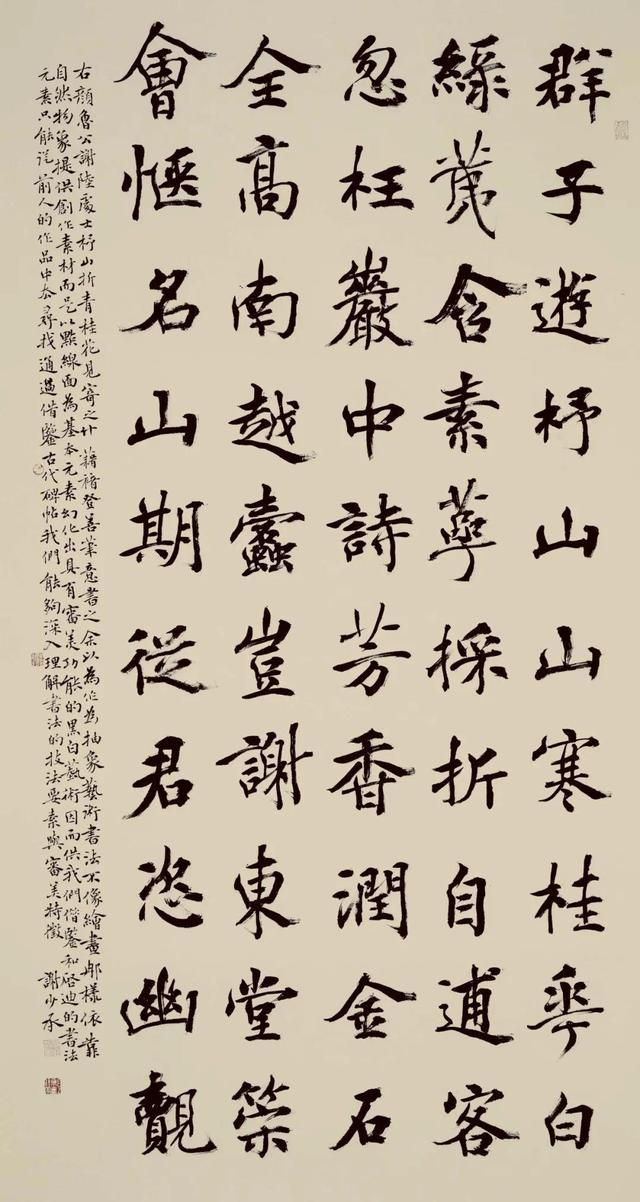 群子遊杼山山寒桂華白
綠荑含素萼採折自逋客
忽枉巖中詩芳香潤金石
全高南越蠹豈謝東堂策
會愜名山期從君恣幽覿
右顏魯公謝陸處士杼山折青桂花見寄之什藉褚登善筆意書之余以為作為抽象藝術書法不像繪畫那樣依靠
自然物象提供創作素材而是以點線面為基本元素幻化出具有審美功能的黑白藝術因而供我們借鑒和啓迪的書法
元素只能從前人的作品中去尋找通過借鑒古代碑帖我們能夠深入理解書法的技法要素與審美特徵 謝少承